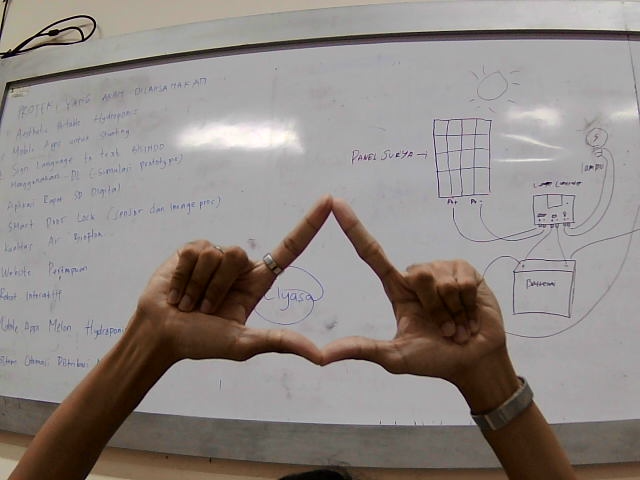 PROYEK YANG AKAN DILAKSANAKAN
Aesthetic Portable Hydroponic
Mobile Apps untuk Stunting
Sign Language to text BISINDO
Menggunakan DL (Simulasi prototype)
Aplikasi Rapor SD Digital
SMART Door Lock (sensor dan image proc)
kualitas Air Bioflok
Website Perjumpaan
Robot Interaktif
Mobile Apps Melon Hydroponi
Sistem Otomasi Distribusi
Elyasa
PANEL SURYA →
P+ P-
LAMPU
Batterai